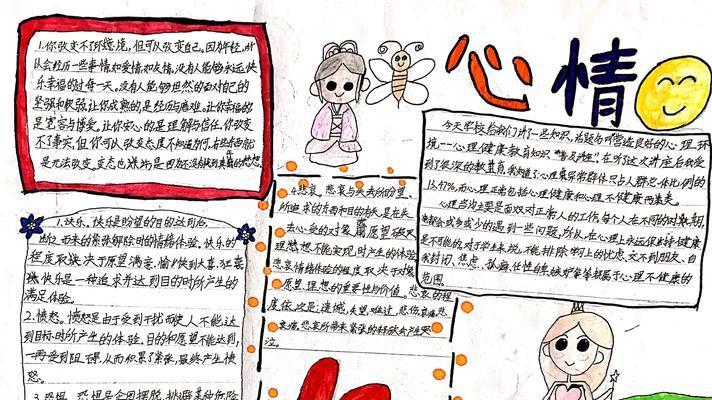 心情
1.你改变不了环境，但可以改变自己，因为年轻，所
以会经历一些事情和爱情和友情，没有人能够永远快
乐幸福的过每一天，没有人能够坦然的面对自己的
坚强和软弱，让你成熟的是经历与磨难，让你幸福的
是宽容与博爱，让你安心的是理解与信任，你改变
不了事实，但你可以改变态度
是无法改变。
1.快乐。快乐是盼望的目的达到后，
出位而来的紧张解除时的情绪体验。快乐的
程度取决于愿望满意、愉快到大喜、狂喜
快乐是一种追求并达到目的时所产生的
满足体验。
2.愤怒。愤怒是由于受到干扰而使人不能达
到目标时所产生的体验。目的和愿望不能达到，
一再受到阻，从而积累了紧张，最终产生愤
怒。
3.恐惧。恐惧是企图摆脱、逃避某种危险
4.悲哀。悲哀与失去所盼望、
所追求的东西和目的有关，是在失
去心爱的对象愿望破灭
理想不能实现时产生的体验
悲哀情绪体验的程度取决于对象
愿望、理想的重要性与价值。悲哀的程
度依次是：遗憾，失望，难过，悲伤，哀痛
悲哀所带来紧张的释放会产生哭
泣。
今天学校给我们讲了一些知识，话题
境——心理健康教育知识
到了很深的教育，我知道了心理异常群体只占人群总体比例的
13.47%，而心理正常包括心理健康和心理不健康两类。
心理咨询主要是面对正常人的工作，每个人在不同的时期
都会或多或少的遇到一些问题，所以，在心理上永远保持健康
是不可能的，对于学生来说，不能排除学习上的忧虑，交不到朋友、自
我封闭、焦虑、孤独、任性自卑嫉妒等等都属于心理不健康的
范围。